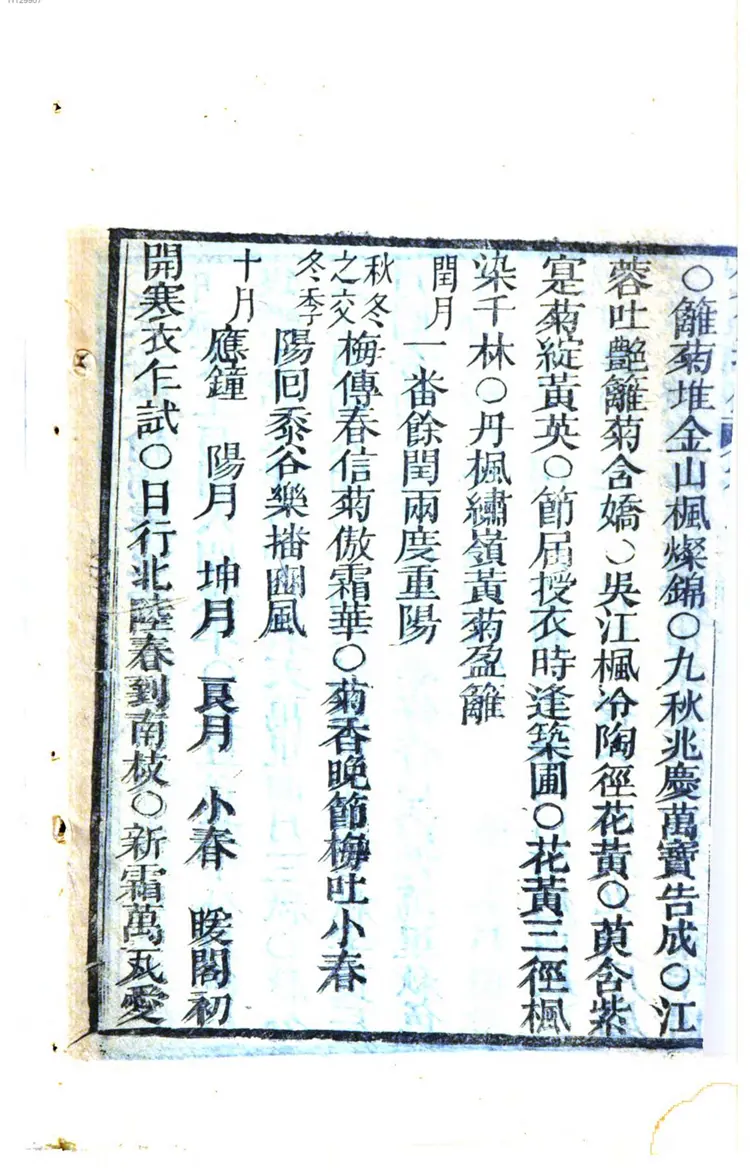 ○籬菊堆金山楓燦錦○九秋兆慶萬寶告成○江
蓉吐艷籬菊含嬌○吳江楓冷陶徑花黃○萸含紫
寔菊綻黃英○節届授衣時逢築圃○花黃三徑楓
染千林○丹楓繡嶺黃菊盈籬
閏月一番餘閏兩度重陽
秋冬之交梅傳春信菊傲霜華○菊香晚節梅吐小春
冬季陽回黍谷樂播豳風
十月應鐘 陽月 坤月 良月 小春 暖閣初
開寒衣乍試○日行北陸春到南枝○新霜萬瓦愛